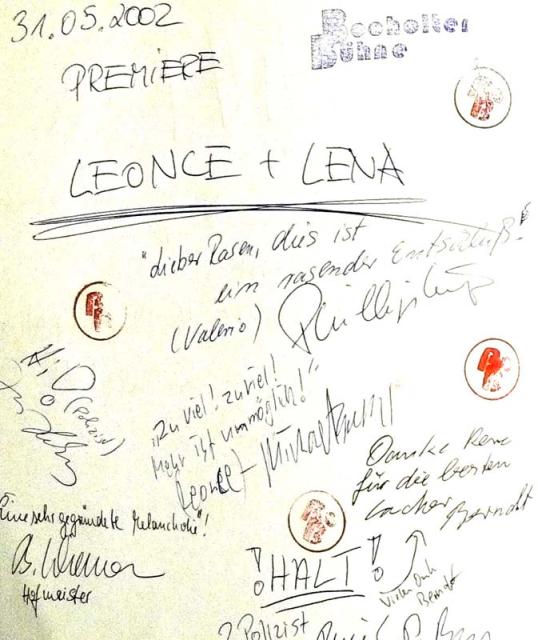 31.05.2002
Bocholter
Bühne
PREMIERE
LEONCE + LENA
"lieber Rasen, dies ist
ein rasender Entschluß."
(Valerio)
"Zu viel! zu viel!
Mehr ist unmöglich!"
Leonce
(Polizist)
Danke Rene
für die besten
Lacher Berndt
Eine sehr gegründete Melancholie"!
B.
Hofmeister
!HALT!
Vielen Dank
Berndt
2 Polizist